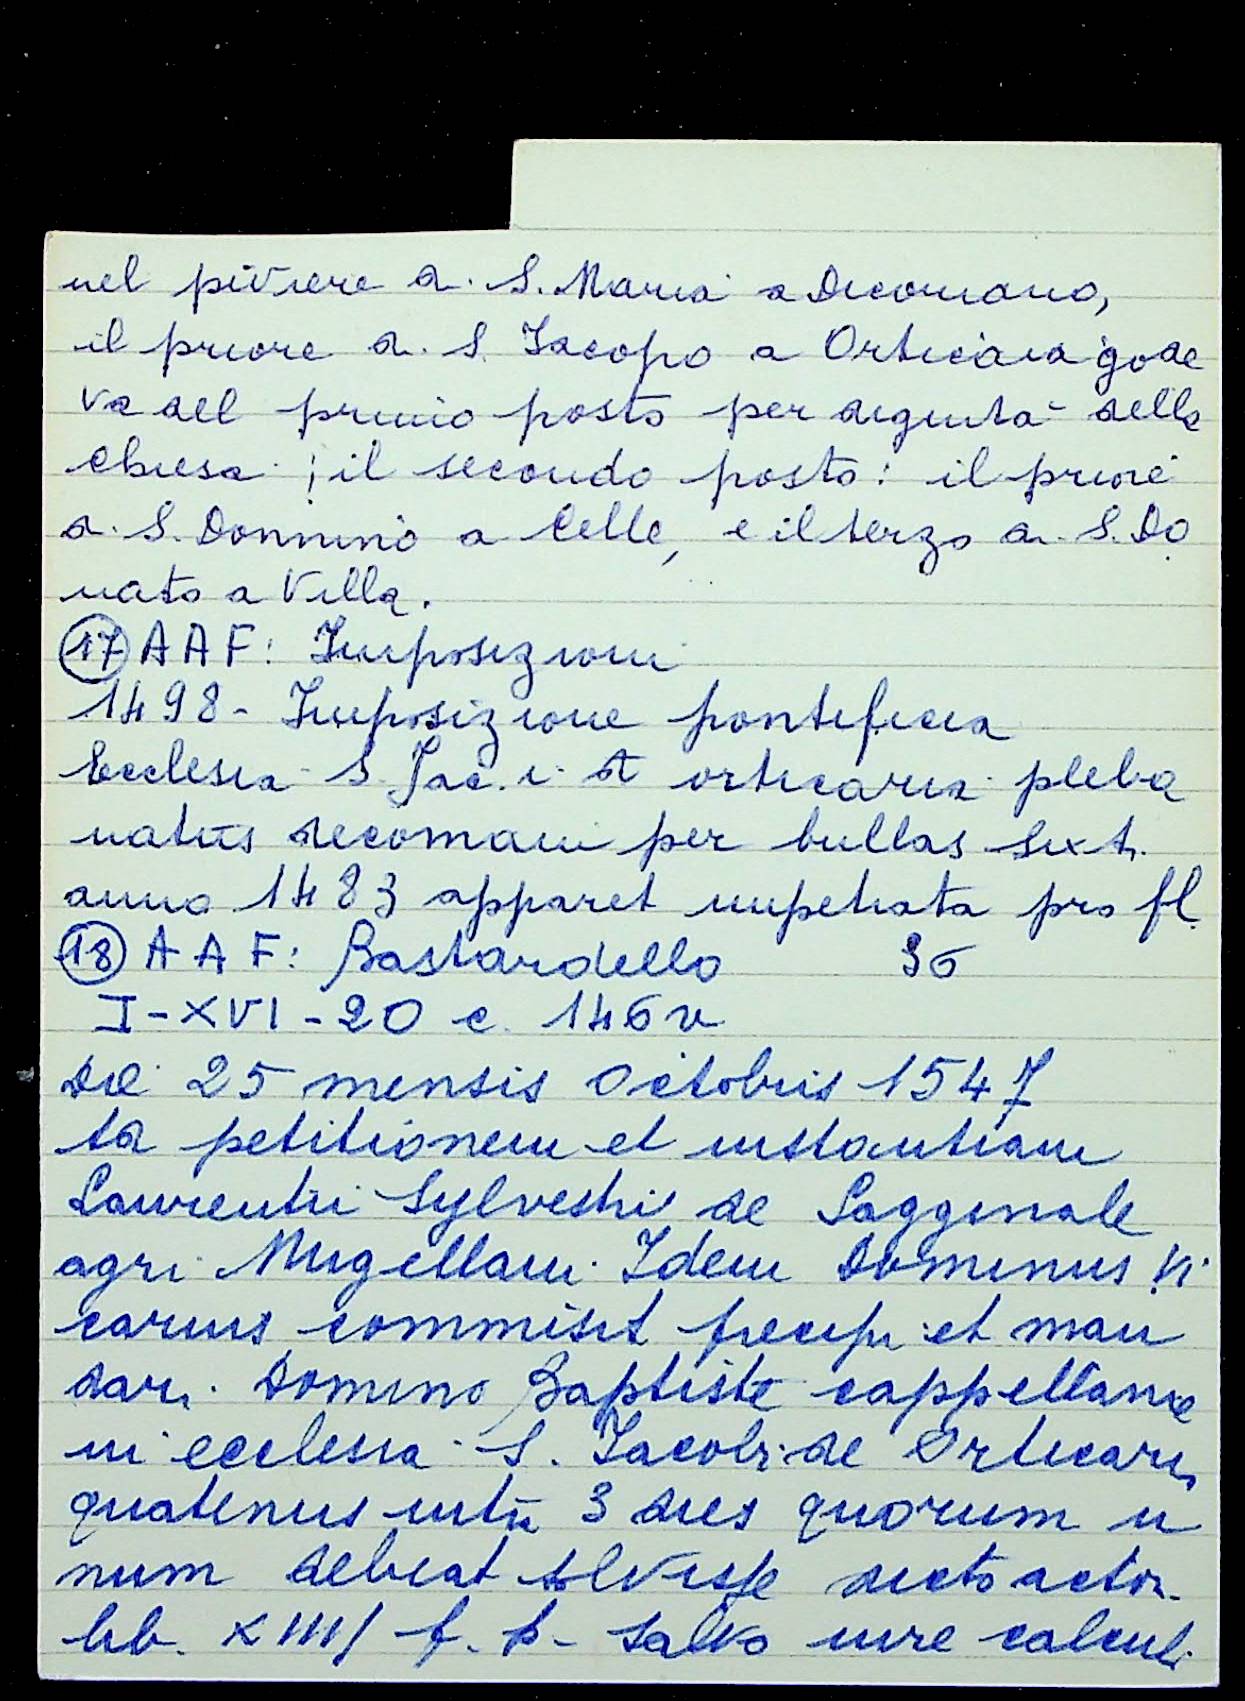 nel piviere di S. Maria a Dicomano,
il priore di S. Iacopo a Orticaia gode
va del primo posto per dignità della
chiesa; il secondo posto: il priore
di S. Donnino a Celle, e il terzo di S. Do
nato a Villa.
17 AAF: Imposizioni
1498 - Imposizione pontificia
Ecclesia S. Jac. i. orticaria pleba
natus decomani per bullas Sixt.
anno 1483 apparet impetrata pro fl.
36
18 AAF: Bastardello
I-XVI-20 c. 146v
Die 25 mensis Octobris 1547
petitionem et instantiam
Laurentii Sylvestri de Sagginale
agri Mugellani. Idem Dominus Vi
carius commisit precipi et man
dari Domino Baptiste cappellano
in ecclesia S. Iacobi de Orticari
quatenus 3 dies quorum u
num debeat solvisse dicto actori
lib. XIIII f. p. salvo iure calculi